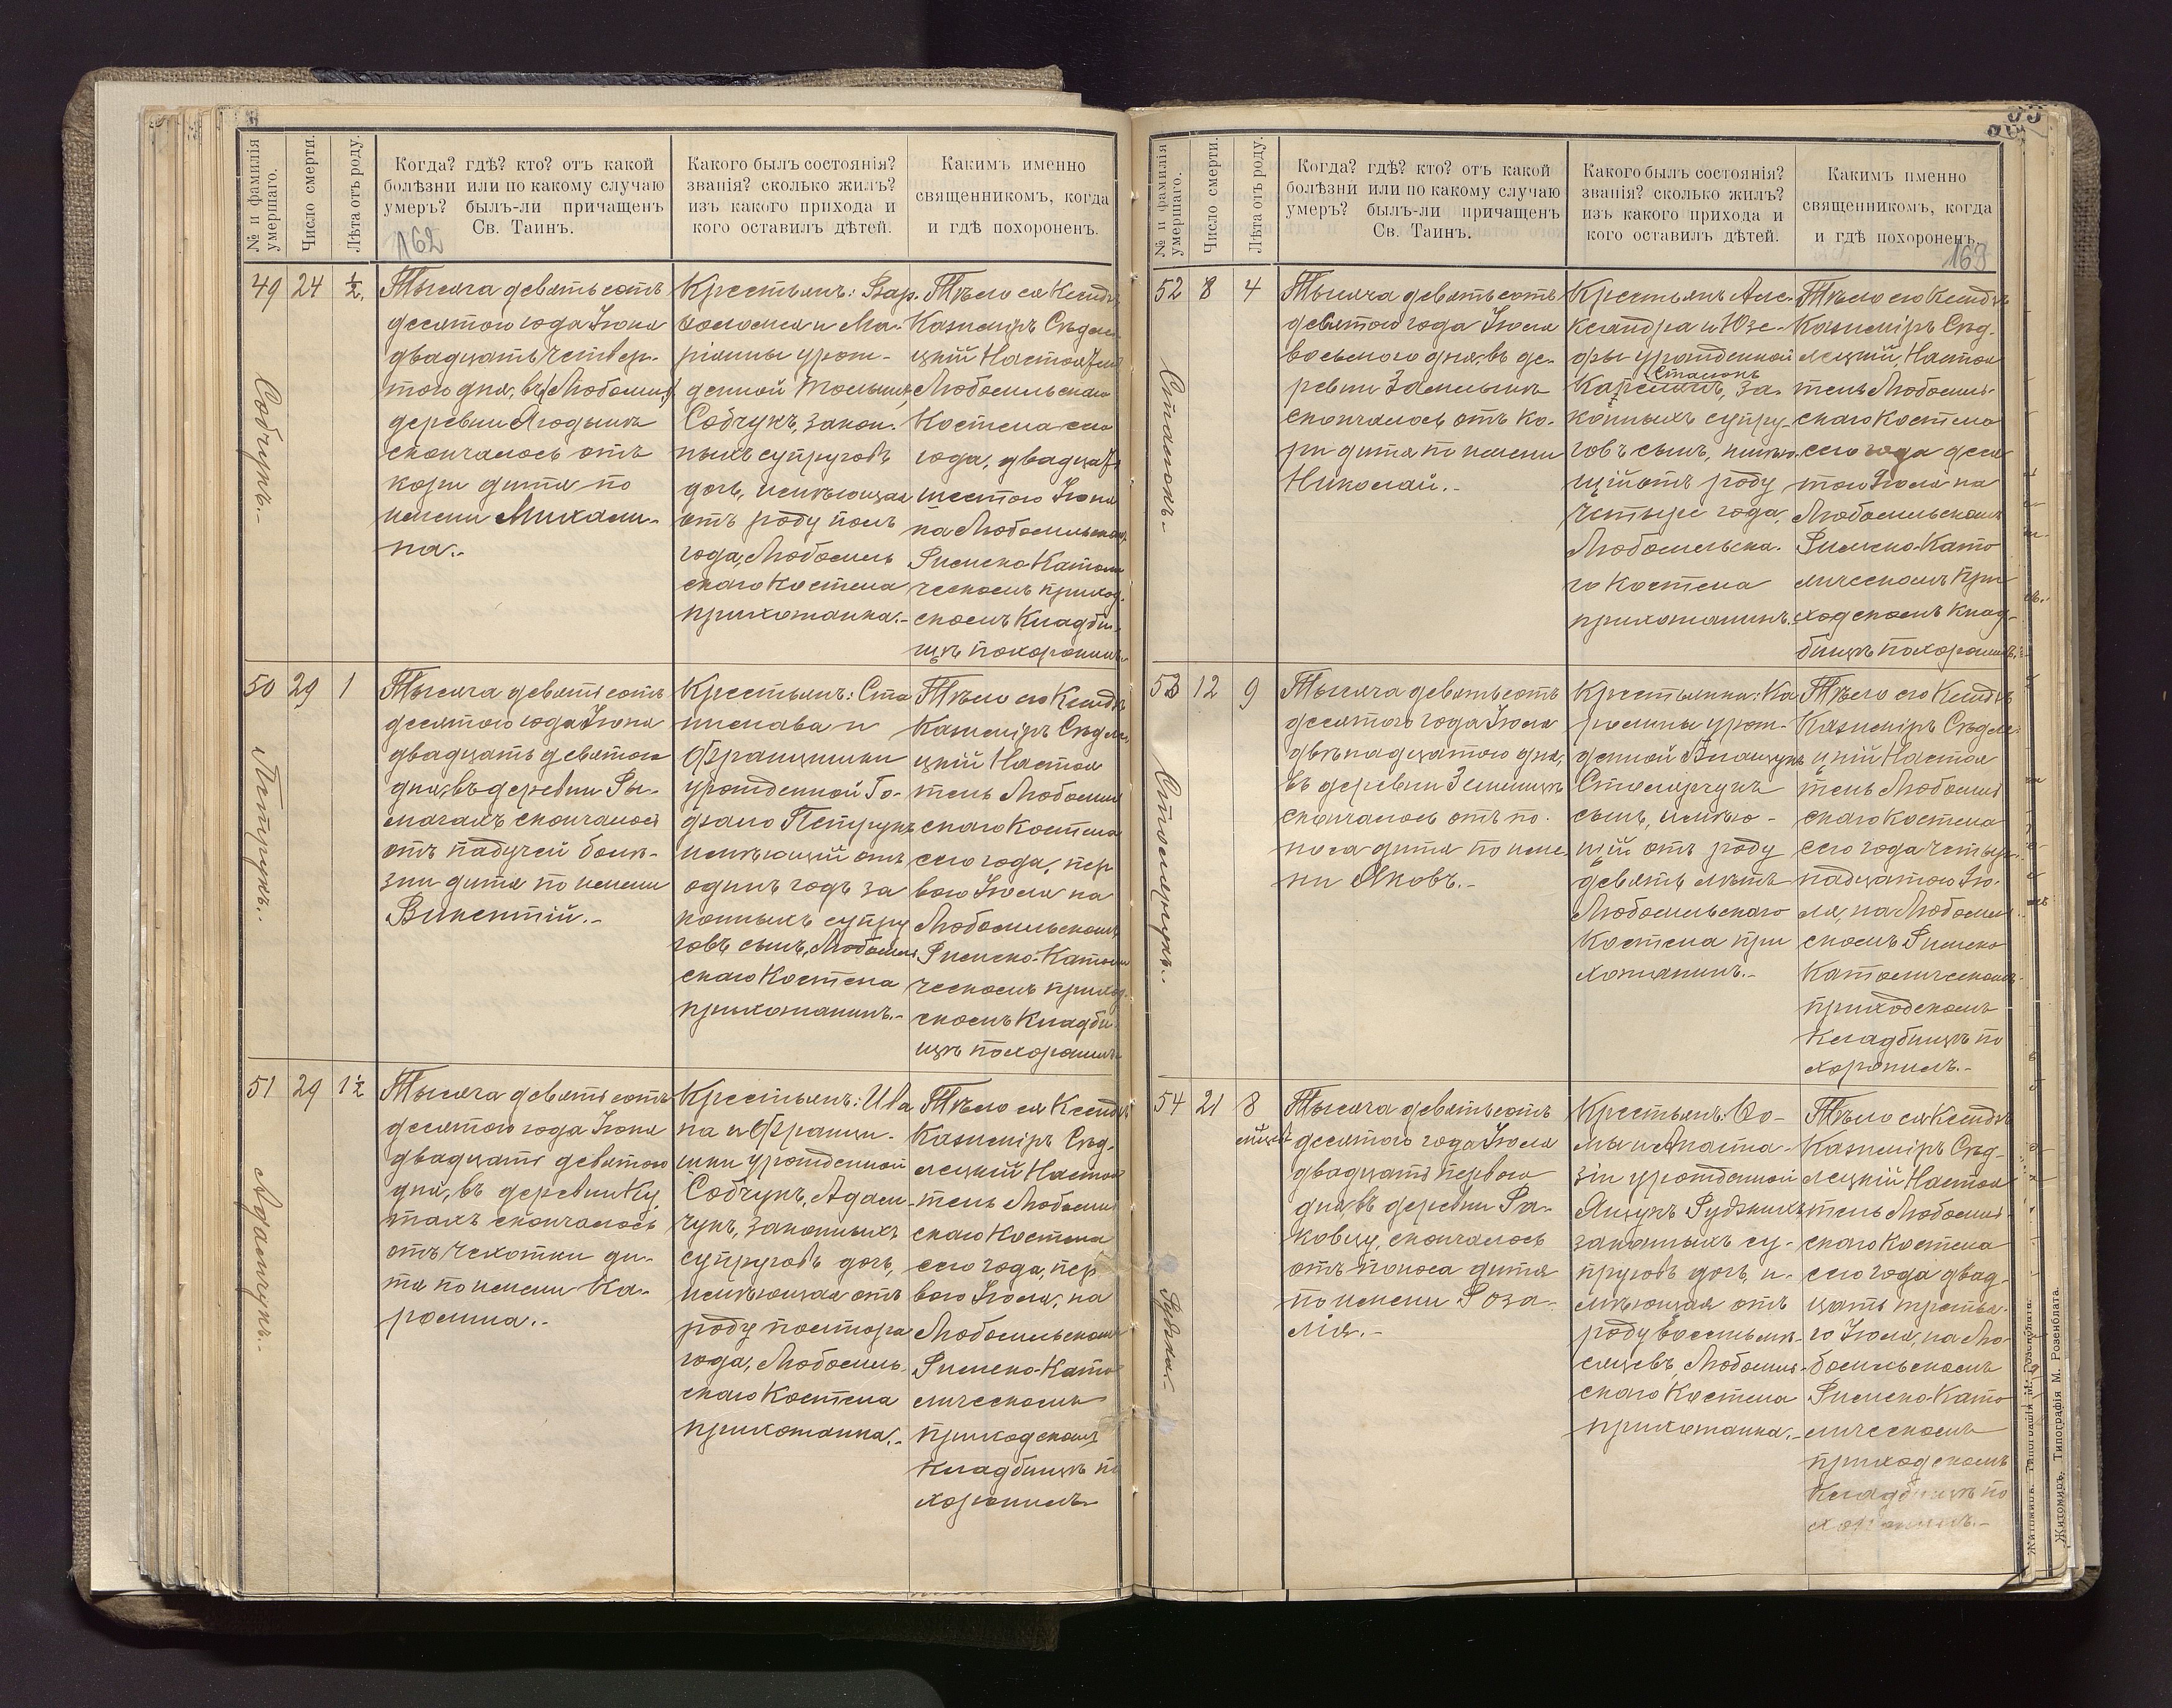 № и фамилія умершаго.
Число смерти.
Лѣта отъ роду.
Когда? гдѣ? кто? отъ какой
болѣзни или по какому случаю
умеръ? былъ-ли причащенъ
Св. Таинъ.
162
Какого былъ состоянія?
званія? сколько жилъ?
изъ какого прихода и
кого оставилъ дѣтей.
Какимъ именно
священникомъ, когда
и гдѣ похороненъ.
49 24 ½
Собчукъ.-
Тысяча девятьсотъ
десятого года Іюня
двадцать четвер-
того дня, въ (Любомль)
деревни Ягодынѣ
скончалось отъ
кори дитя по
имени Михали-
на.-
Крестьянъ: Вар-
ѳоломея и Ма-
ріанны урож-
денной
Собчукъ, закон-
ныхъ супруговъ
дочь, имѣющая
отъ роду полъ
года, Любомль
скаго Костела
прихожанка.-
Тѣло ея Ксендзъ
Казиміръ Сѣдле-
цкій Настоятель
Любомльскаго
Костела сего
года, двадцать
шестого Іюня
на Любомльскомъ
Римско-Католи
ческомъ приход-
скомъ Кладби-
щѣ похоронилъ.-
50 29 1
Петрукъ.-
Тысяча девятьсотъ
десятого года Іюня
двадцать девятого
дня, въ деревни Ры-
мачахъ скончалось
отъ падучей болѣ-
зни дитя по имени
Викентій.-
Крестьянъ: Ста
нислава и
Францишки
урожденной Го-
дзало Петрукъ
имѣющій отъ
одинъ годъ за
конныхъ супру
говъ сынъ, Любомль
скаго Костела
прихожанинъ.-
Тѣло его Ксендзъ
Казиміръ Сѣдле-
цкій Настоя
тель Любомль
скаго Костела
сего года, пер
вого Іюля на
Любомльскомъ
Римско-Католи
ческомъ приход-
скомъ Кладби-
щѣ похоронилъ.-
51 29 1½
Адамчукъ.-
Тысяча девятьсотъ
десятого года Іюня
двадцать девятого
дня, въ деревни Ку
тахъ скончалось
отъ чахотки ди-
тя по имени Ка-
ролина.-
Крестьянъ: Ива
на и Францы-
шки урожденной
Собчукъ, Адам-
чукъ, законныхъ
супруговъ дочь,
имѣющая отъ
роду полтора
года, Любомль-
скаго Костела
прихожанка.-
Тѣло ея Ксендзъ
Казиміръ Сѣд-
лецкій Настоя
тель Любомль
скаго Костела
сего года, пер
вого Іюля, на
Любомльскомъ
Римско-Като
лическомъ
приходскомъ
кладбищѣ по
хоронилъ
№ и фамилія умершаго.
Число смерти.
Лѣта отъ роду.
Когда? гдѣ? кто? отъ какой
болѣзни или по какому случаю
умеръ? былъ-ли причащенъ
Св. Таинъ.
Какого былъ состоянія?
званія? сколько жилъ?
изъ какого прихода и
кого оставилъ дѣтей.
Какимъ именно
священникомъ, когда
и гдѣ похороненъ.
163
52 8 4
Стасюкъ.-
Тысяча девятьсотъ
девятого года Іюля
восьмого дня, въ де-
ревни
скончалось отъ ко-
ри дитя по имени
Николай.-
Крестьянъ Але-
ксандра и Юзе-
фы урожденной
Стасюкъ
за-
конныхъ супру-
говъ сынъ, имѣю-
щій отъ роду
четыре года,
Любомльска-
го Костела
прихожанинъ.-
Тѣло его Ксендзъ
Казиміръ Сѣд-
лецкій, Настоя
тель Любомль-
скаго Костела
сего года деся
того Іюля на
Любомльскомъ
Римско-Като
лическомъ при
ходскомъ клад-
бищѣ похоронилъ.-
53 12 9
Столярчукъ.-
Тысяча девятьсотъ
десятого года Іюля
двѣнадцатого дня,
въ деревни Землицѣ
скончалось отъ по-
носа дитя по име-
ни Яковъ.-
Крестьянки: Ка
ролины урож-
денной Влащукъ
Столярчукъ
сынъ, имѣю-
щій отъ роду
девять лѣтъ
Любомльскаго
Костела при
хожанинъ.-
Тѣло его Ксендзъ
Казиміръ Сѣдле
цкій Настоя
тель Любомль
скаго Костела
сего года четыр-
надцатого Ію-
ля, на Любомль-
скомъ Римско
Католическомъ
приходскомъ
Кладбищѣ по
хоронилъ.-
54 21 8
мѣсяц
Рудзка.-
Тысяча девятьсотъ
десятого года Іюля
двадцать первого
дня въ деревни Ра-
ковцу, скончалось
отъ поноса дитя
по имени Роза-
лія.-
Крестьянъ: Ѳо-
мы и Анаста-
зіи урожденной
Ящукъ Рудзкихъ
законныхъ су-
пруговъ дочь, и-
мѣющая отъ
роду восемь мѣ-
сяцевъ, Любомль-
скаго Костела
прихожанка.-
Тѣло ея Ксендзъ
Казиміръ Сѣд-
лецкій Настоя
тель Любомль-
скаго Костела
сего года двад-
цать третья-
го Іюля, на Лю-
бомльскомъ
Римско-Като
лическомъ
приходскомъ
Кладбищѣ по
хоронилъ.-
Житомиръ. Типографія М. Розенблата.